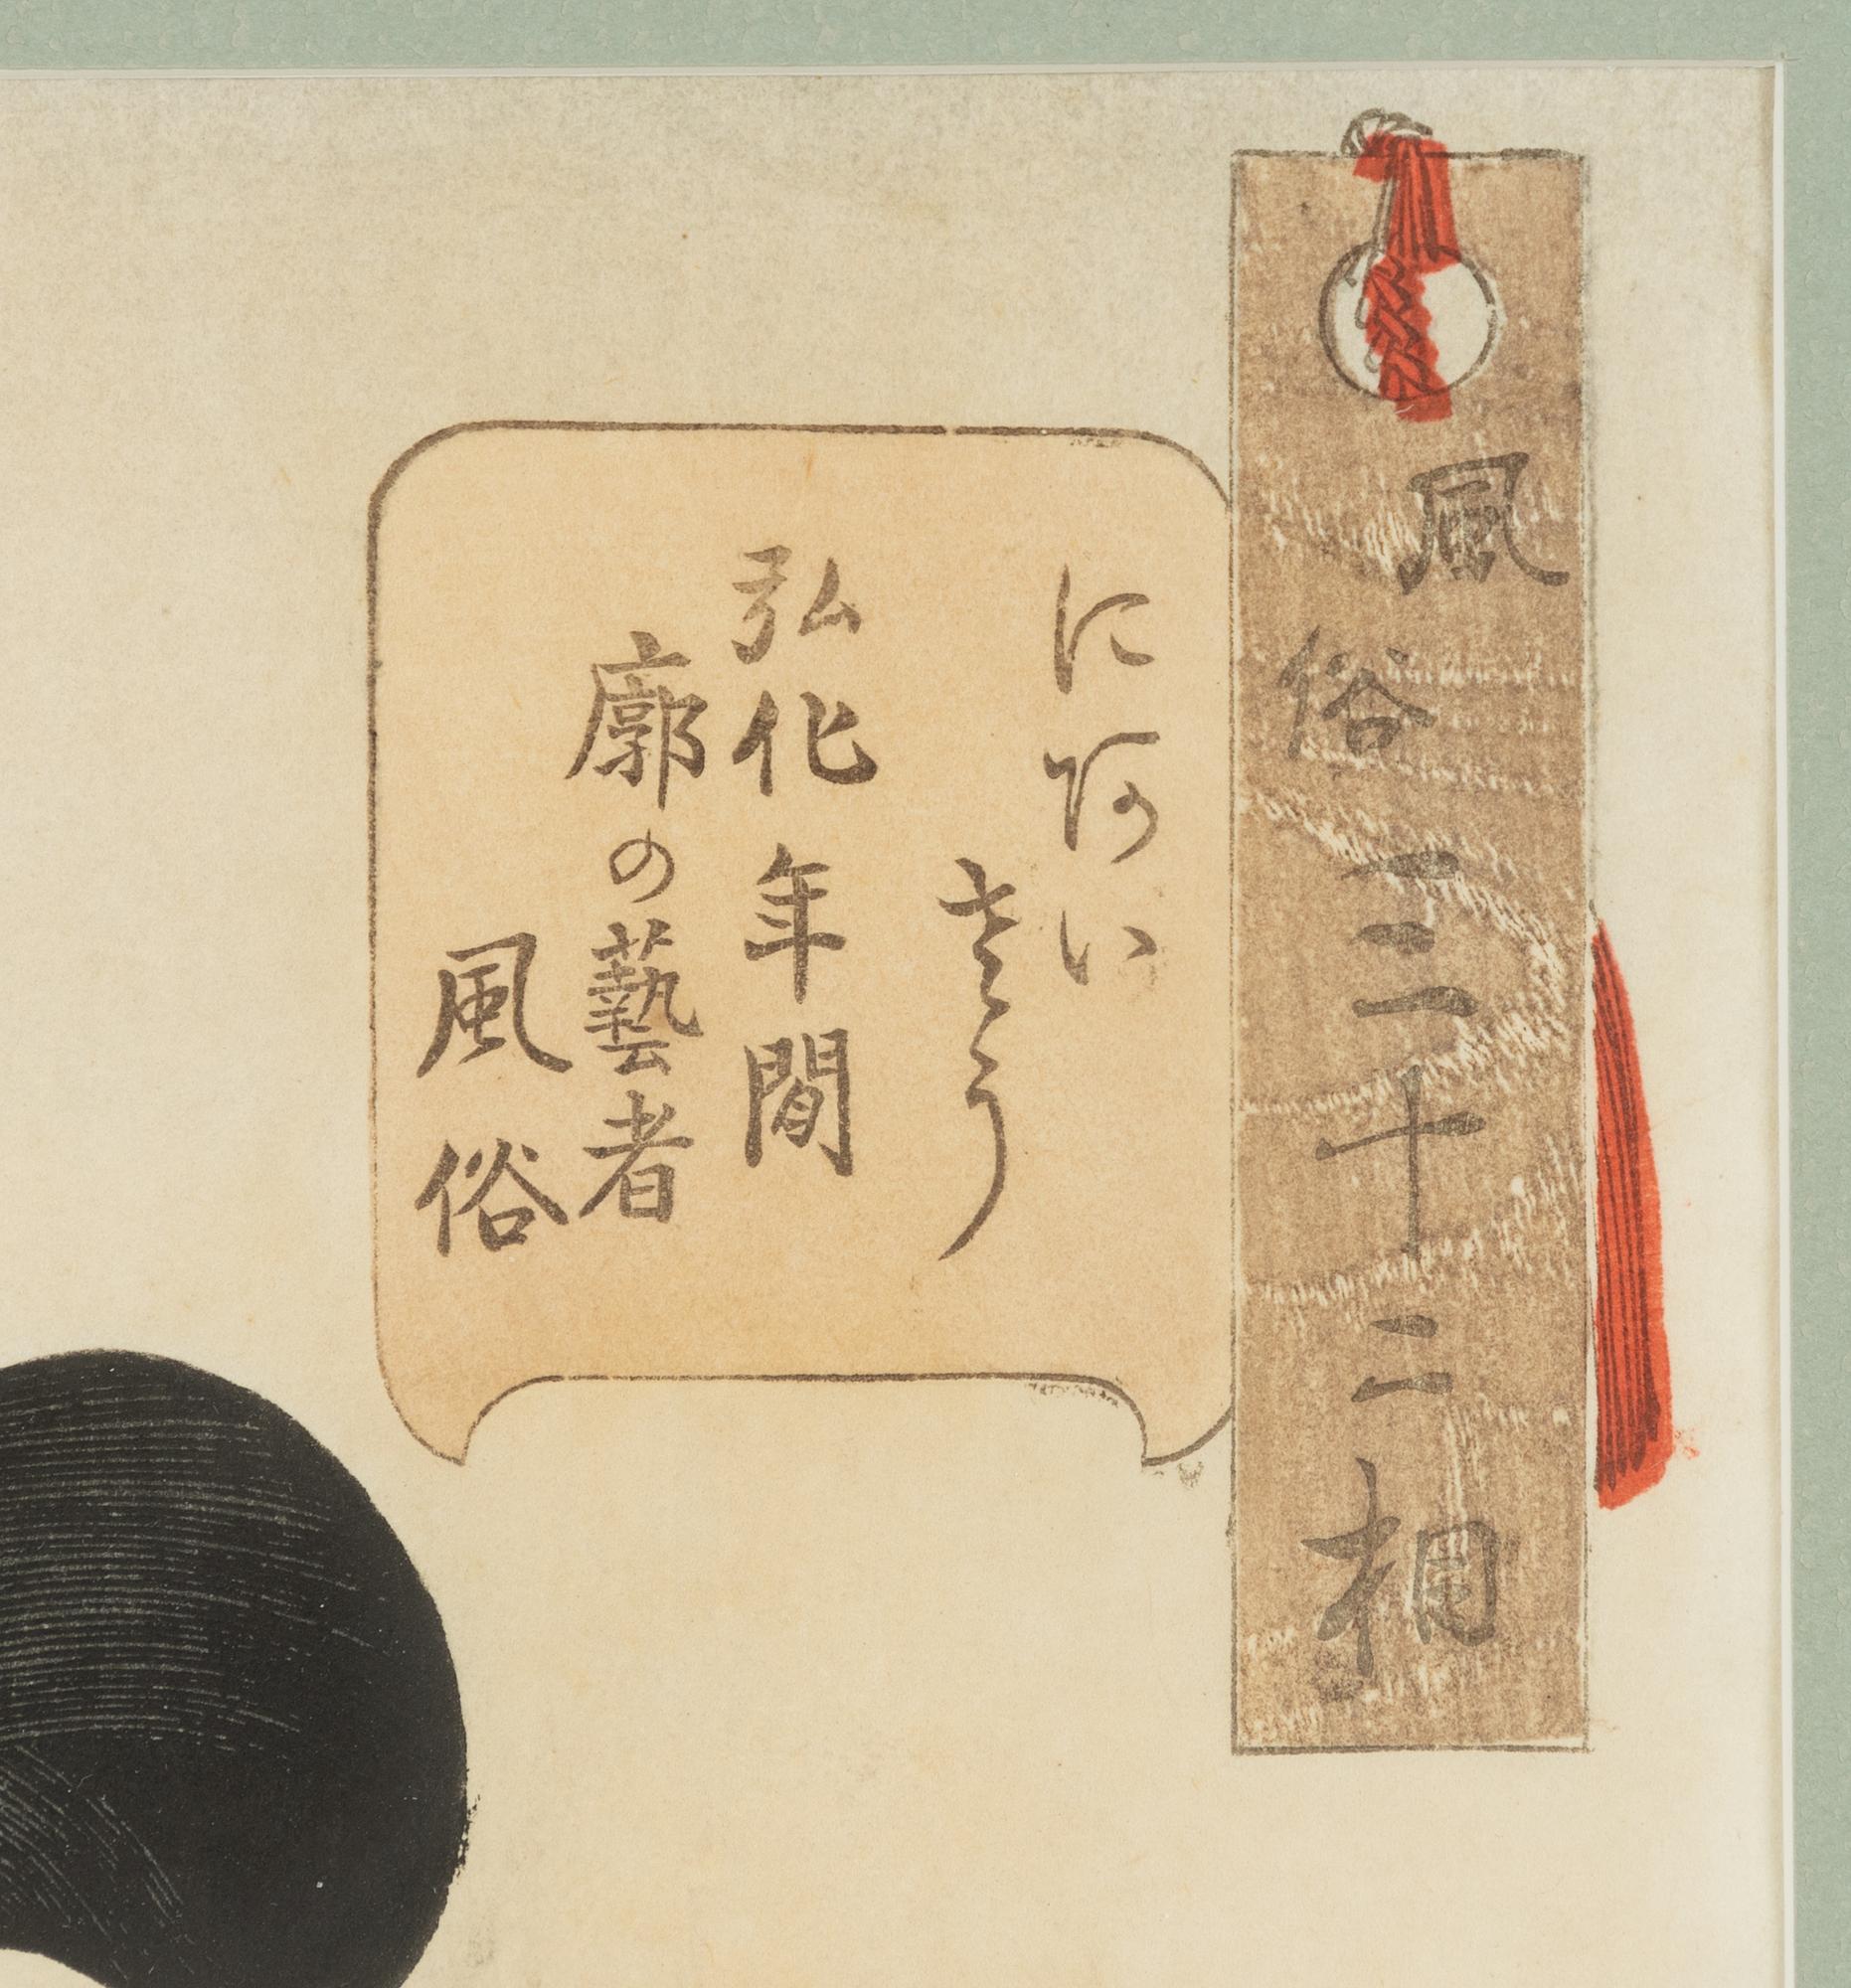 風俗三十二相
にあい
さう
弘化年間
廓の藝者
風俗